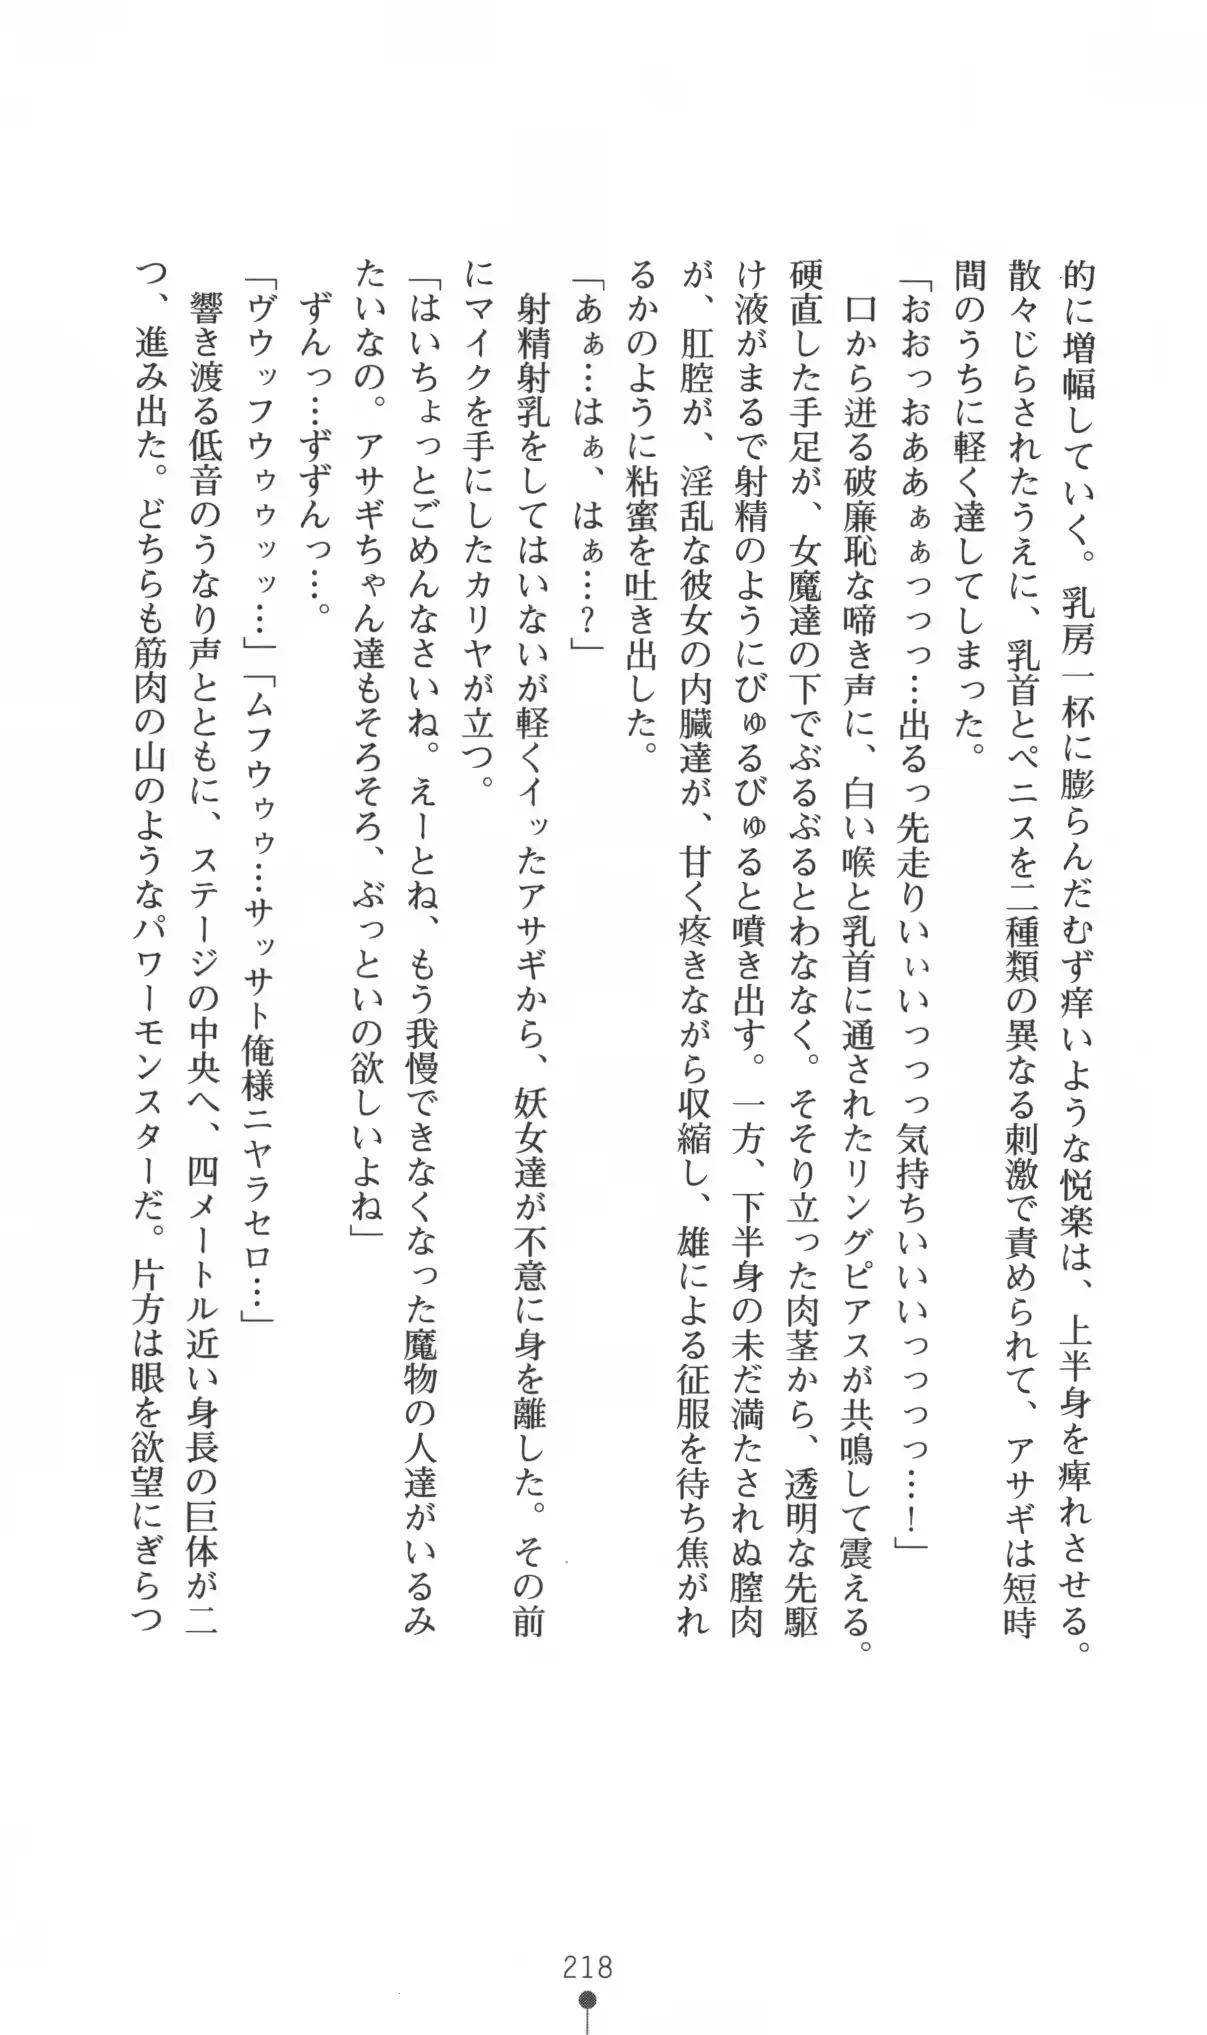 的に増幅していく。乳房一杯に膨らんだむず痒いような悦楽は、上半身を痺れさせる。
散々じらされたうえに、乳首とペニスを二種類の異なる刺激で責められて、アサギは短時
間のうちに軽く達してしまった。
「おおっおああぁぁっっっ…出るっ先走りいぃいっっっ気持ちいいいっっっっ…！」
口から迸る破廉恥な啼き声に、白い喉と乳首に通されたリングピアスが共鳴して震える。
硬直した手足が、女魔達の下でぶるぶるとわななく。そそり立った肉茎から、透明な先駆
け液がまるで射精のようにびゅるびゅると噴き出す。一方、下半身の未だ満たされぬ膣肉
が、肛腔が、淫乱な彼女の内臓達が、甘く疼きながら収縮し、雄による征服を待ち焦がれ
るかのように粘蜜を吐き出した。
「あぁ…はぁ、はぁ…？」
射精射乳をしてはいないが軽くイッたアサギから、妖女達が不意に身を離した。その前
にマイクを手にしたカリヤが立つ。
「はいちょっとごめんなさいね。えーとね、もう我慢できなくなった魔物の人達がいるみ
たいなの。アサギちゃん達もそろそろ、ぶっといの欲しいよね」
ずんっ…ずずんっ…。
「ヴウッフウゥゥッッ…」「ムフウゥゥ…サッサト俺様ニヤラセロ…」
響き渡る低音のうなり声とともに、ステージの中央へ、四メートル近い身長の巨体が二
つ、進み出た。どちらも筋肉の山のようなパワーモンスターだ。片方は眼を欲望にぎらつ
218